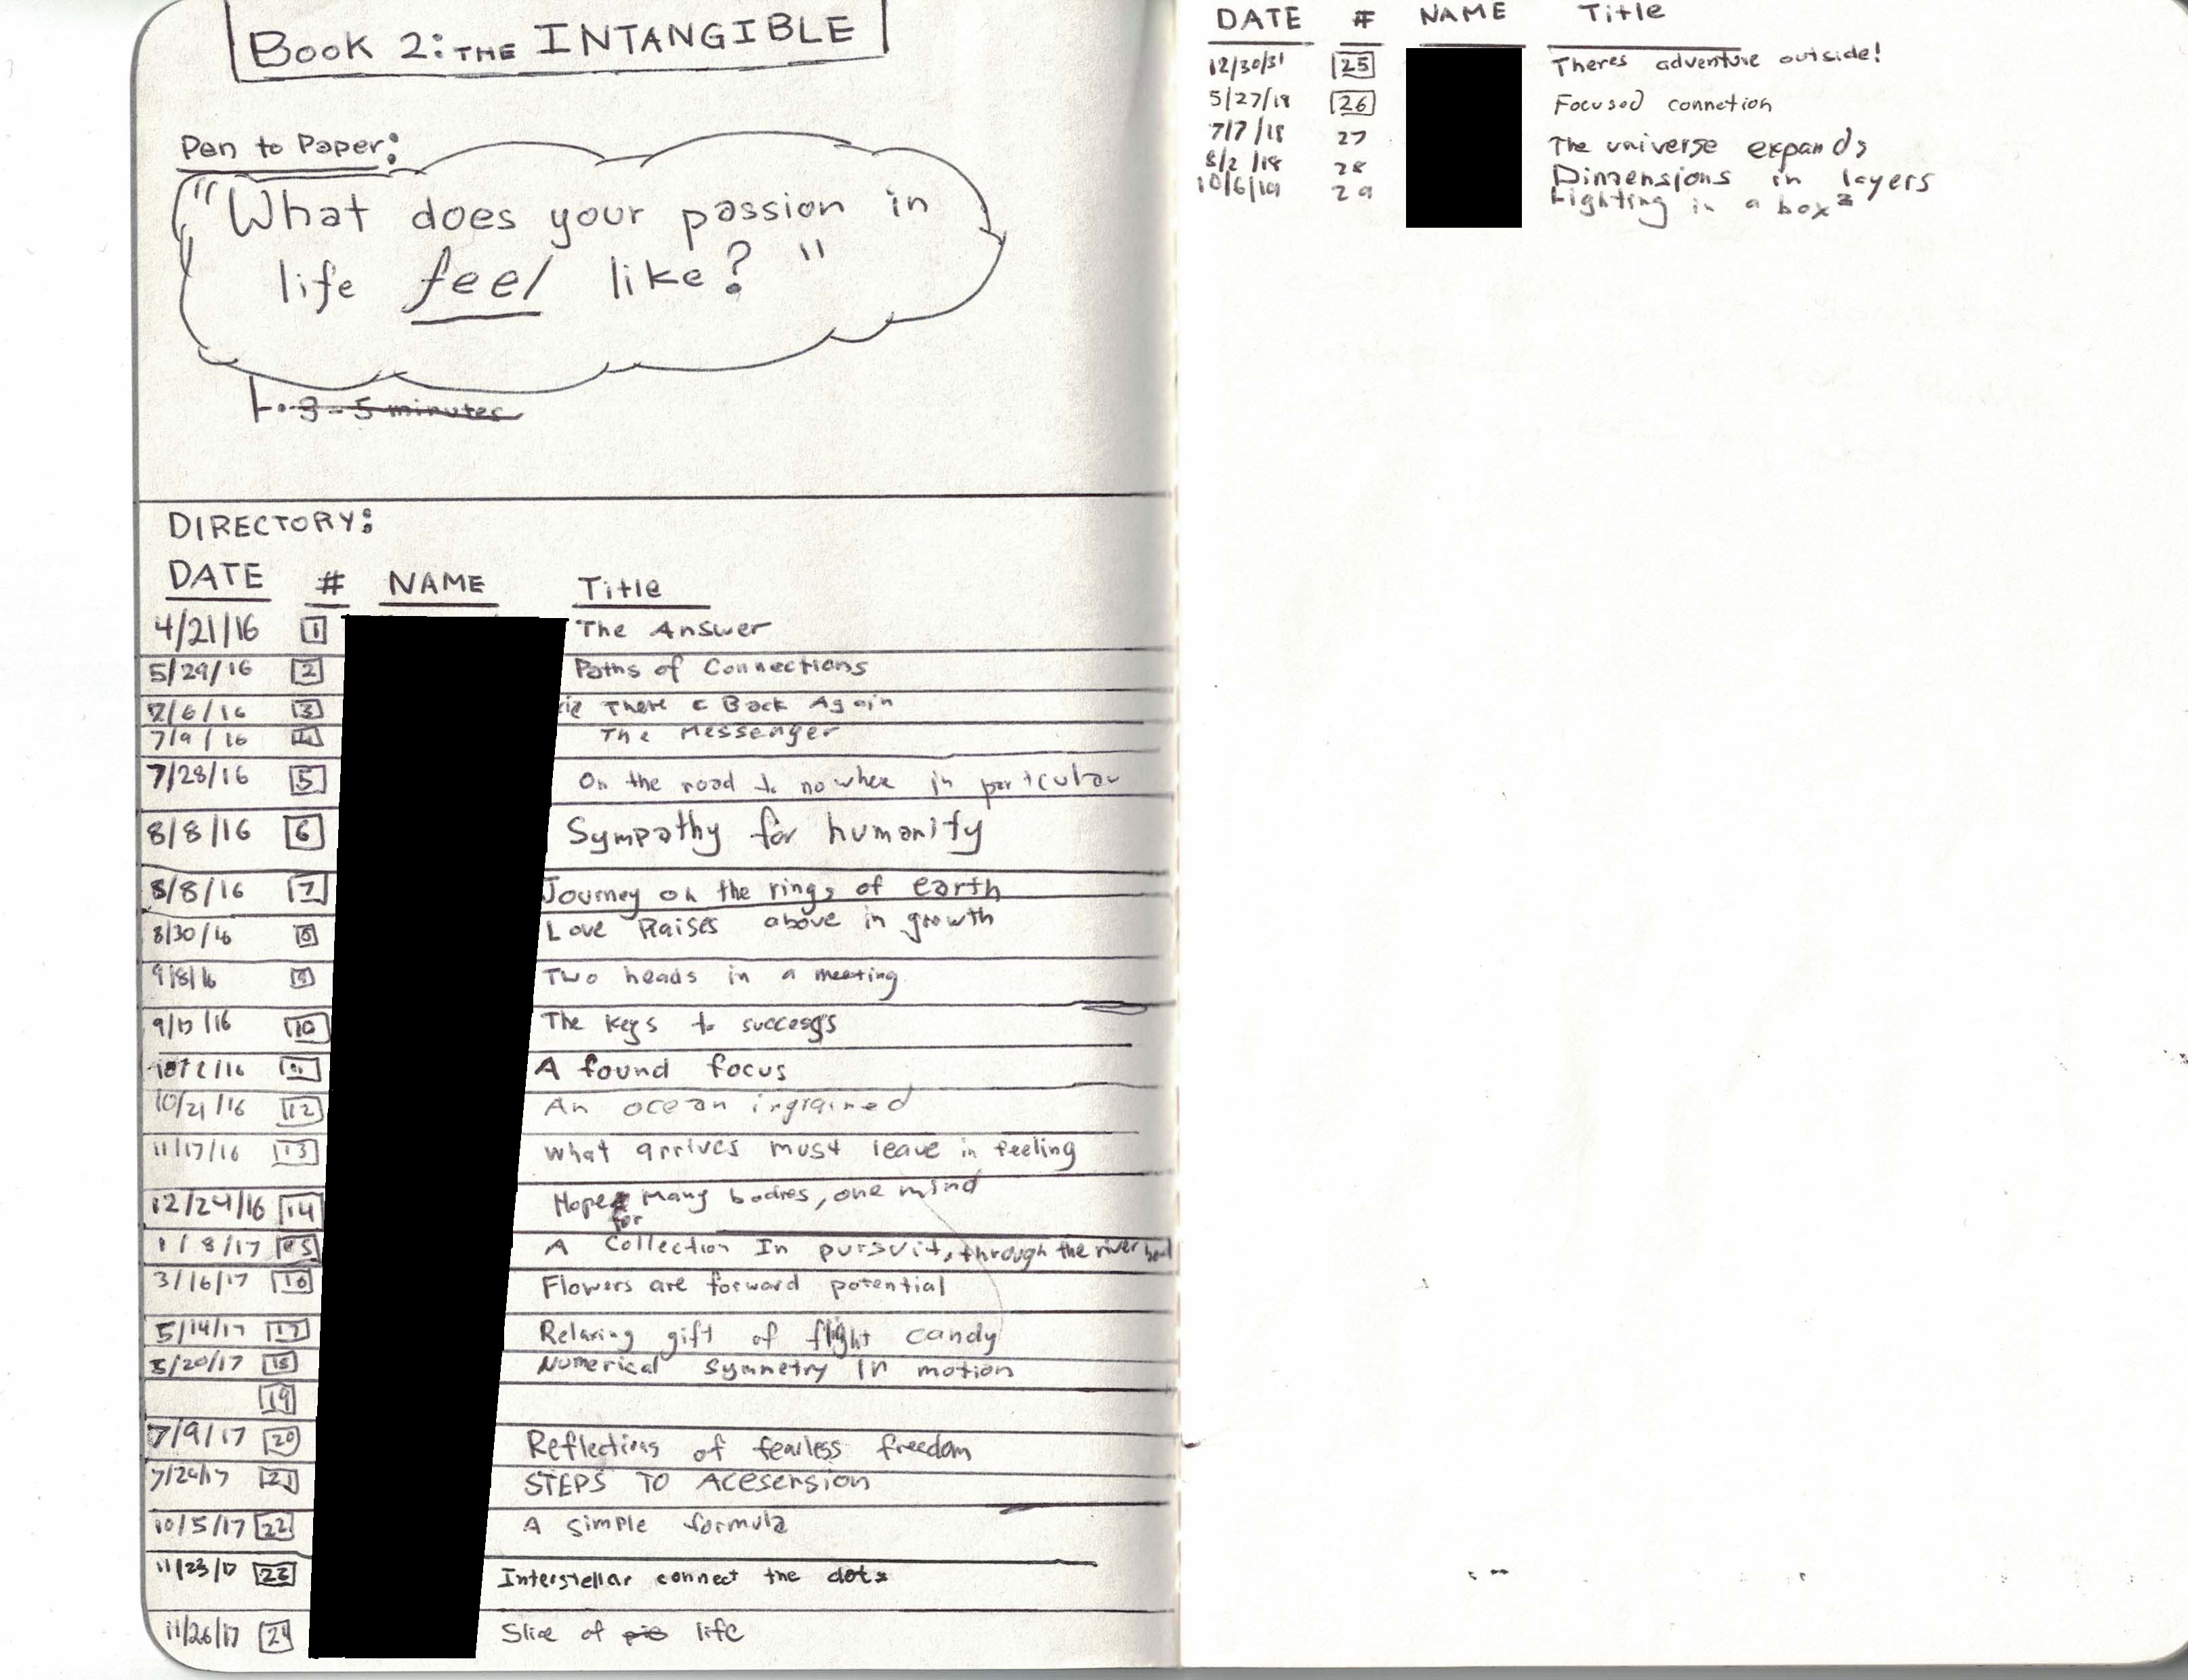 Book 2: THE INTANGIBLE
Pen to Paper:
"What does your passion in
life feel like?"
3-5 minutes
DIRECTORY:
DATE # NAME Title
4/21/16 1 The Answer
5/29/16 2 Paths of Connections
7/6/16 3 There & Back Again
7/9/16 4 The Messenger
7/28/16 5 On the road to nowhere in particular
8/8/16 6 Sympathy for humanity
8/8/16 7 Journey on the rings of earth
8/30/16 8 Love Raises above in growth
9/8/16 9 Two heads in a meeting
10 The keys to success
11 A found focus
10/21/16 12 An ocean ingrained
11/17/16 13 What arrives must leave in feeling
12/24/16 14 Hope for Many bodies, one mind
1/8/17 15 A Collection In pursuit, through the river
3/16/17 16 Flowers are forward potential
5/14/17 17 Relaxing gift of flight candy
5/20/17 18 Numerical Symmetry in motion
19
7/9/17 20 Reflections of fearless freedom
21 STEPS TO ACESERSION
10/5/17 22 A simple formula
11/23/17 23 Interstellar connect the dots
11/26/17 24 Slice of pie life
DATE # NAME Title
25 Theres adventure outside!
5/27/18 26 Focused connetion
7/7/18 27 The universe expands
8/2/18 28 Dimensions in layers
29 Lighting in a box